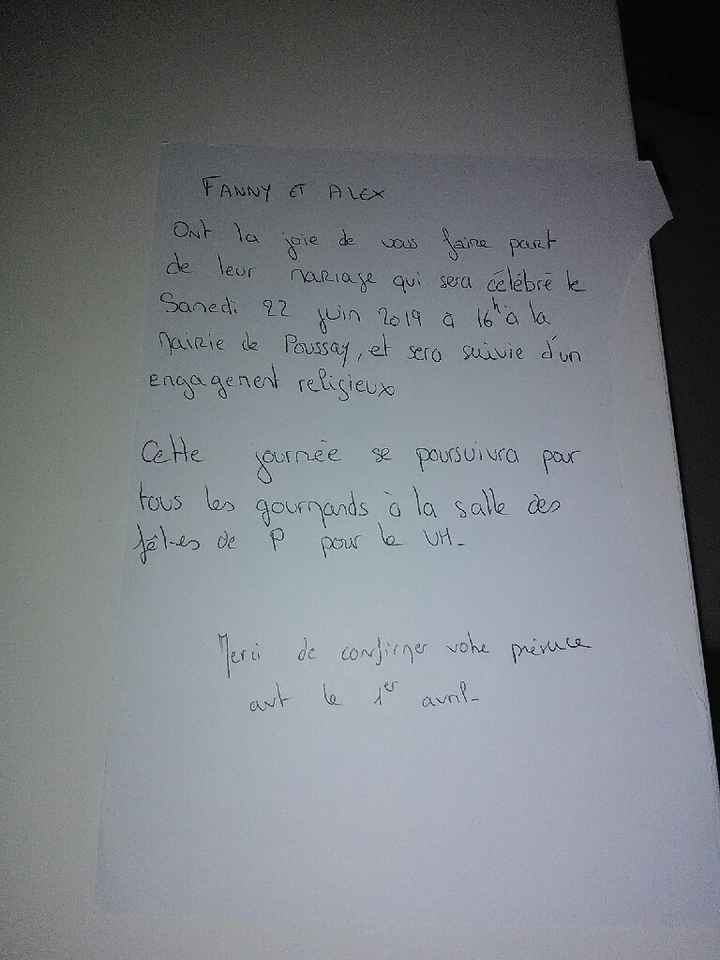 FANNY ET ALEX
Ont la joie de vous faire part
de leur mariage qui sera célébré le
Samedi 22 juin 2019 à 16h à la
Mairie de Poussay, et sera suivie d'un
engagement religieux
Cette journée se poursuivra pour
tous les gourmands à la salle des
fêtes de P pour le VH-
Merci de confirmer votre présence
avt le 1er avril-